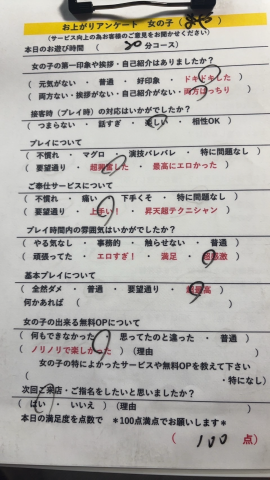 お上がりアンケート 女の子(みや)
(サービス向上の為お客様のご意見をお聞かせください)
本日のお遊び時間 ( 80 分コース)
女の子の第一印象や挨拶・自己紹介はありましたか?
( 元気がない ・ 普通 ・ 好印象 ・ ドキドキした )
( 両方ない・挨拶がない・自己紹介がない・両方ばっちり )
接客時(プレイ時)の対応はいかがでしたか?
( つまらない ・ 話すぎ ・ 楽しい ・ 相性OK )
プレイについて
( 不慣れ ・ マグロ ・ 演技バレバレ ・ 特に問題なし )
( 要望通り ・ 超興奮した ・ 最高にエロかった )
ご奉仕サービスについて
( 不慣れ ・ 痛い ・ 下手くそ ・ 特に問題なし )
( 要望通り ・ 上手い! ・ 昇天超テクニシャン )
プレイ時間内の雰囲気はいかがでしたか?
( やる気なし ・ 事務的 ・ 触らせない ・ 普通 )
( 頑張ってた ・ エロすぎ! ・ 満足 ・ 超感激 )
基本プレイについて
( 全然ダメ ・ 普通 ・ 要望通り ・ 超最高 )
何かあれば ( )
女の子の出来る無料OPについて
( 何もできなかった ・ 思ってたのと違った ・ 普通 )
( ノリノリで楽しかった ) (理由 )
女の子の特によかったサービスや無料OPを教えて下さい
( ・特になし)
次回ご来店・ご指名をしたいと思いましたか?
( はい ・ いいえ ) (理由 )
本日の満足度を点数で *100点満点でお願いします*
( 100 点)